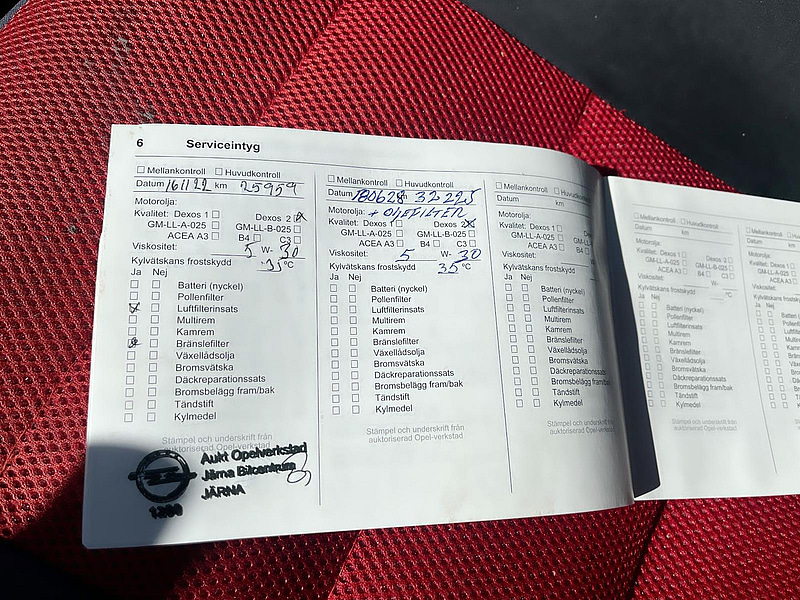 6 Serviceintyg
Mellankontroll Huvudkontroll
Datum 161122 km 25959
Motorolja:
Kvalitet: Dexos 1 Dexos 2
GM-LL-A-025 GM-LL-B-025
ACEA A3 B4 C3
Viskositet: 5 W- 30
Kylvätskans frostskydd -35 °C
Ja Nej
Batteri (nyckel)
Pollenfilter
Luftfilterinsats
Multirem
Kamrem
Bränslefilter
Växellådsolja
Bromsvätska
Däckreparationssats
Bromsbelägg fram/bak
Tändstift
Kylmedel
Stämpel och underskrift från
auktoriserad Opel-verkstad
Aukt Opelverkstad
Järna Bilcentrum
JÄRNA
1280
Mellankontroll Huvudkontroll
Datum 180628 32225
Motorolja: + OLJEFILTER
Kvalitet: Dexos 1 Dexos 2
GM-LL-A-025 GM-LL-B-025
ACEA A3 B4 C3
Viskositet: 5 W- 30
Kylvätskans frostskydd 35 °C
Ja Nej
Batteri (nyckel)
Pollenfilter
Luftfilterinsats
Multirem
Kamrem
Bränslefilter
Växellådsolja
Bromsvätska
Däckreparationssats
Bromsbelägg fram/bak
Tändstift
Kylmedel
Stämpel och underskrift från
auktoriserad Opel-verkstad
Mellankontroll
Datum km
Motorolja:
Kvalitet: Dexos 1
GM-LL-A-025
ACEA A3 B4
Viskositet:
Kylvätskans frostskydd
Ja Nej
Batteri (nyckel)
Pollenfilter
Luftfilterinsats
Multirem
Kamrem
Bränslefilter
Växellådsolja
Bromsvätska
Däckreparationssats
Bromsbelägg fram/bak
Tändstift
Kylmedel
Stämpel och underskrift från
auktoriserad Opel-verkstad
Mellankontroll Huvudkontroll
Datum km
Motorolja:
Kvalitet: Dexos 1 Dexos 2
GM-LL-A-025 GM-LL-B-025
ACEA A3 B4 C3
Viskositet: W-
Kylvätskans frostskydd °C
Ja Nej
Batteri (nyckel)
Pollenfilter
Luftfilterinsats
Multirem
Kamrem
Bränslefilter
Växellådsolja
Bromsvätska
Däckreparationssats
Bromsbelägg fram/bak
Tändstift
Kylmedel
Stämpel och underskrift från
auktoriserad Opel-verkstad
Mellankontroll
Datum km
Motorolja:
Kvalitet: Dexos 1
GM-LL-A-025
ACEA A3
Viskositet:
Kylvätskans frostskydd
Ja Nej